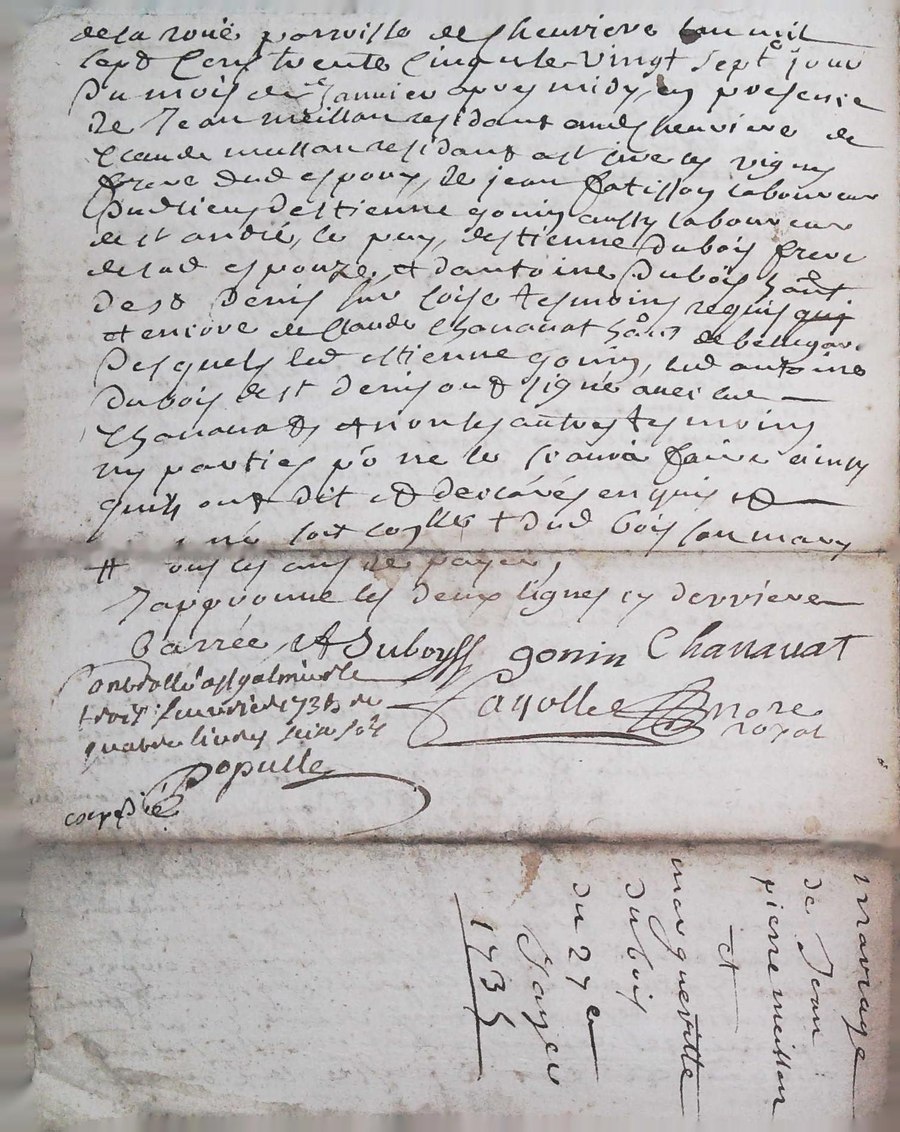 de la rouë parroisse de Chenviere l'an mil
sept Cens trente Cinq et le vingt sept.e jour
Du mois de Janvier apres midy, en presence
De Jean meillan residant aud Chenviere de
Claude meillan residant a st
frere dud espoux, de jean fatisson laboureur
Dud lieu D'estienne gonin aussy laboureur
de st andré, le puy, d'estienne Dubois frere
de lad espouze, et d'antoine Dubois
De st Denis sur Coise tesmoins requis qui
et encore de Claude Chanavat de
Desquels led estienne gonin, led antoine
Dubois de st Denis ont signé avec led
Chanavat, et non les autres tesmoins
ny parties po ne le scavoir faire ainsy
quils ont dit et desclarés enquis et
soit Collé + Dud bois son mary
# de payer,
J'approuve les deux lignes cy derriere
Barrée A Duboys gonin Chanavat
Controllé a st galmier le
trois fevrier 1735 re
quatre livres seize sols
Fayolle no.re royal
Populle
mariage
de Jean
pierre meillan
et
margueritte
dubois
du 27e
Janver
1735